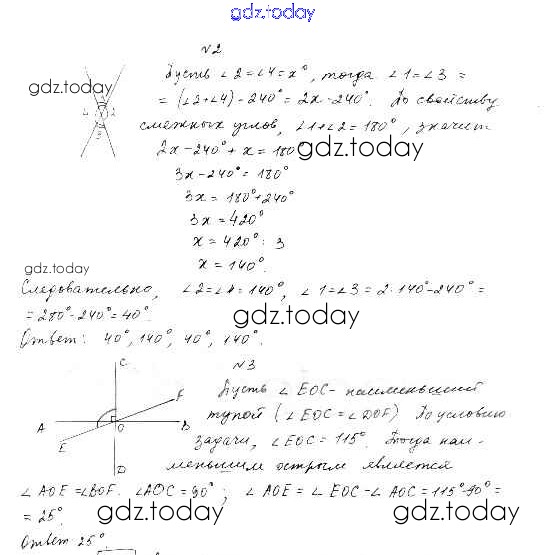 gdz.today
№2
Пусть ∠2=∠4=x°, тогда ∠1=∠3 =
gdz.today
= (∠2+∠4) - 240° = 2x - 240°. По свойству
4 1 2
3
смежных углов, ∠1+∠2=180°, значит
2x - 240° + x = 180°
gdz.today
3x - 240° = 180°
3x = 180° + 240°
3x = 420°
x = 420° : 3
x = 140°.
gdz.today
Следовательно, ∠2=∠4=140°, ∠1=∠3=2·140°-240°=
= 280°-240°=40°.
gdz.today
Ответ: 40°, 140°, 40°, 140°.
№3
C
F
A O B
E
D
Пусть ∠EOC - наименьший
тупой (∠EOC = ∠DOF) По условию
задачи, ∠EOC = 115°. Тогда наи-
меньшим острым является
∠AOE = ∠BOF. ∠AOC = 90°; ∠AOE = ∠EOC - ∠AOC = 115°-90° =
= 25°.
gdz.today gdz.today
Ответ 25°